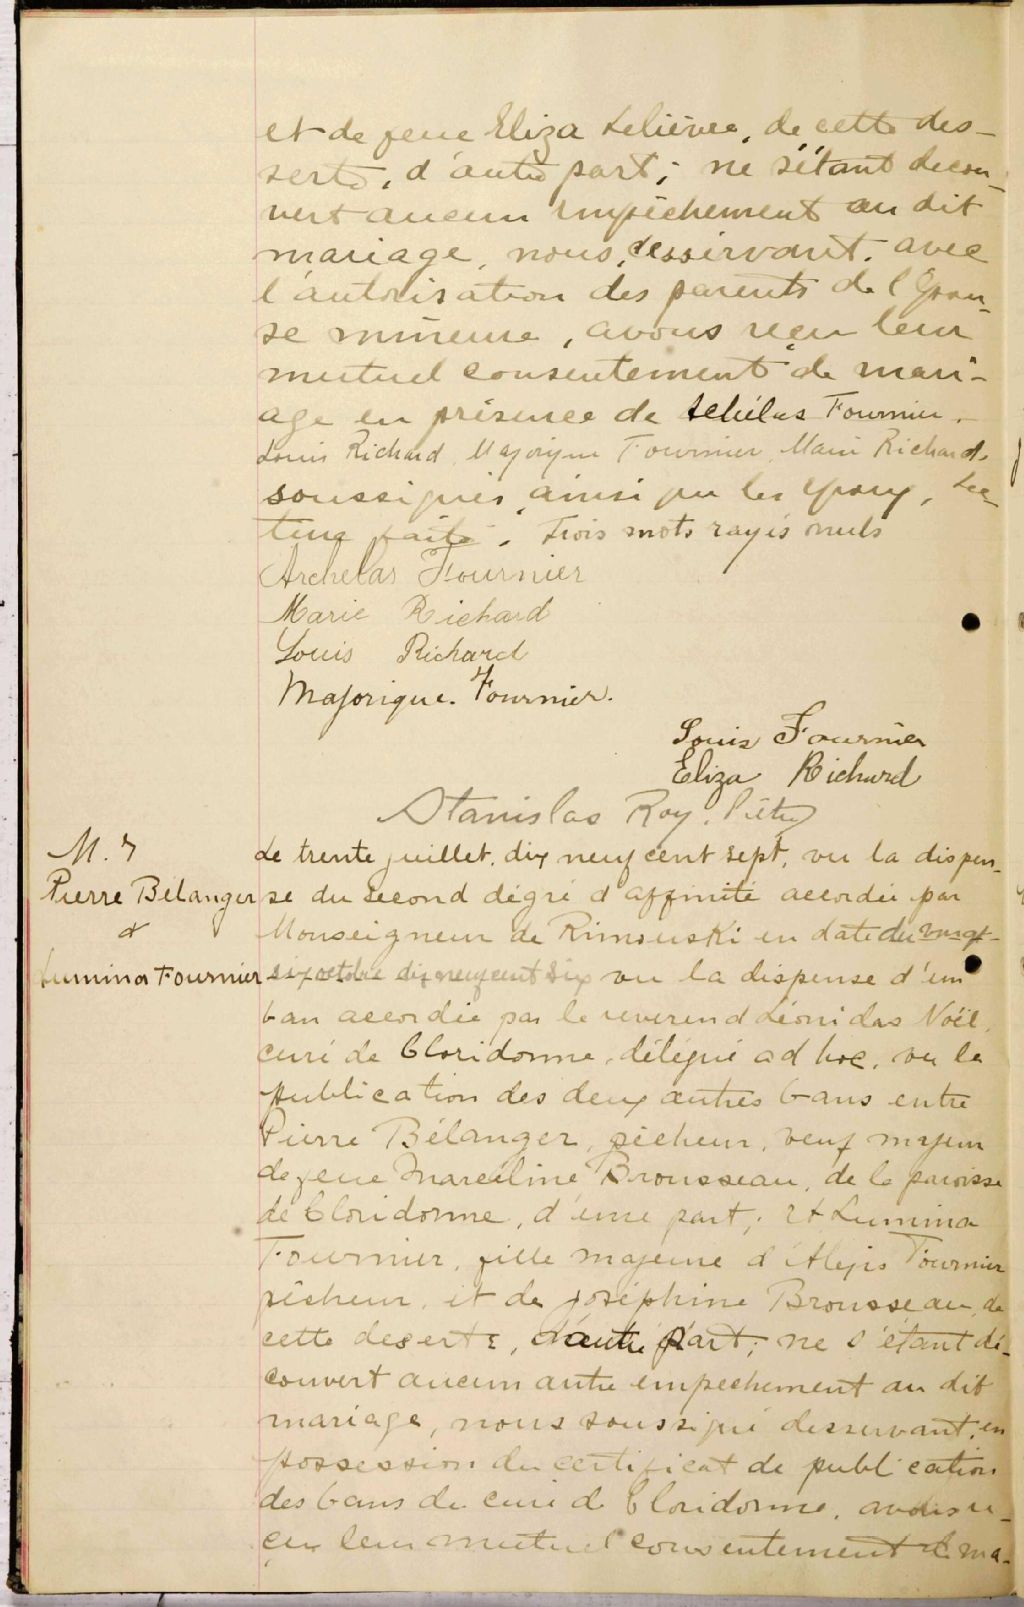 et de feue Eliza Lelièvre, de cette des-
serte, d'autre part; ne s'étant décou-
vert aucun empêchement au dit
mariage, nous, desservant, avec
l'autorisation des parents de l'épou-
se mineure, avons reçu leur
mutuel consentement de mari-
age en présence de Fournier,
Louis Richard, Majorique Fournier, Marie Richard,
soussignés, ainsi que les époux, Lec-
ture faite. Trois mots rayés nuls
Archelas Fournier
Marie Richard
Louis Richard
Majorique. Fournier.
Louis Fournier
Eliza Richard
Stanislas Roy, Ptre
M. 7
Pierre Bélanger
&
Lumina Fournier
Le trente juillet, dix neuf cent sept, vu la dispen-
se du second dégré d'affinité accordée par
Monseigneur de Rimouski en date du vingt-
six octobre dix neuf cent six vu la dispense d'un
ban accordée par le reverend Léonidas Noël,
curé de Cloridorme, délégué ad hoc, vu la
publication des deux autres bans entre
Pierre Bélanger, pêcheur, veuf majeur
de feue Marcéline Brousseau, de la paroisse
de Cloridorme, d'une part; et Lumina
Fournier, fille majeure d'Alexis Fournier
pêcheur, et de Joséphine Brousseau, de
cette deserte, d'autre part; ne s'étant dé-
couvert aucun autre empechement au dit
mariage, nous soussigné desservant, en
possession du certificat de publication
des bans du curé de Cloridorme, avons re-
çu leur mutuel consentement de ma-